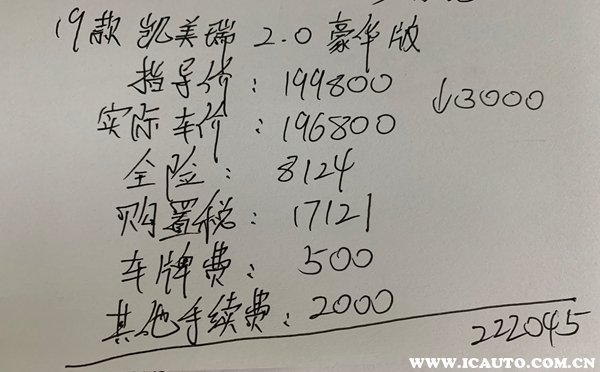 19款 凯美瑞 2.0 豪华版
指导价：199800 ↓3000
实际车价：196800
全险：8124
购置税：17121
车牌费：500
其他手续费：2000
222045
WWW.ICAUTO.COM.CN